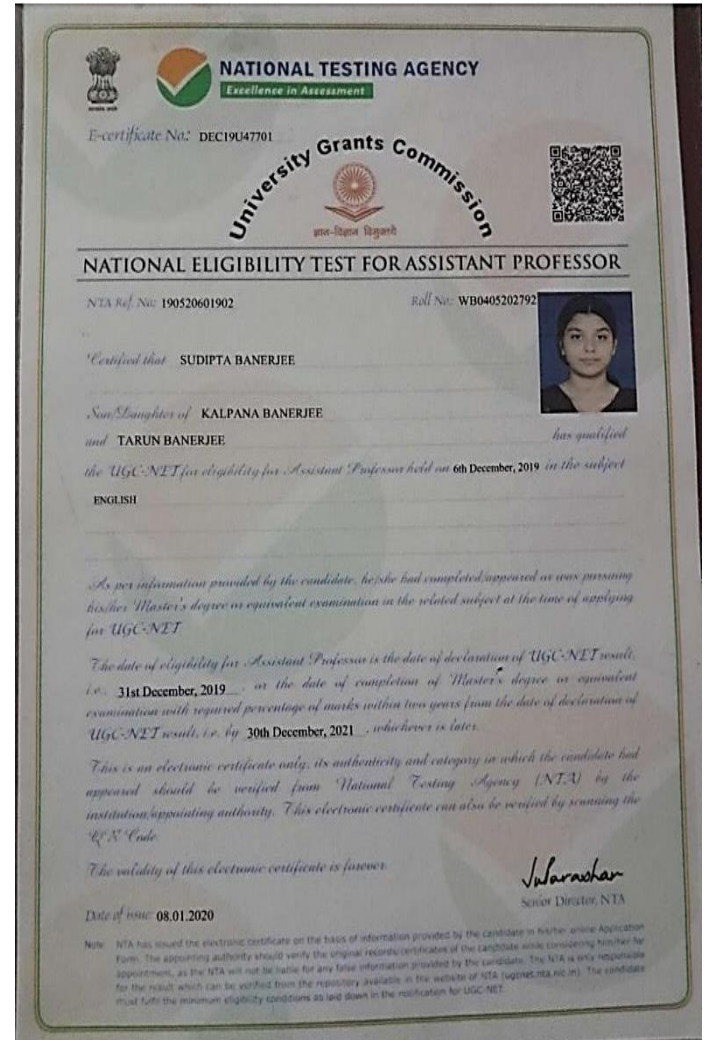 NATIONAL TESTING AGENCY
Excellence in Assessment
E-certificate No.: DEC19U47701
University Grants Commission
ज्ञान-विज्ञान विमुक्तये
NATIONAL ELIGIBILITY TEST FOR ASSISTANT PROFESSOR
NTA Ref. No: 190520601902 Roll No.: WB0405202792
Certified that SUDIPTA BANERJEE
Son/Daughter of KALPANA BANERJEE
and TARUN BANERJEE has qualified
the UGC-NET for eligibility for Assistant Professor held on 6th December, 2019 in the subject
ENGLISH
As per information provided by the candidate, he/she had completed/appeared or was pursuing
his/her Master's degree or equivalent examination in the related subject at the time of applying
for UGC-NET.
The date of eligibility for Assistant Professor is the date of declaration of UGC-NET result,
i.e., 31st December, 2019, or the date of completion of Master's degree or equivalent
examination with required percentage of marks within two years from the date of declaration of
UGC-NET result, i.e. by 30th December, 2021, whichever is later.
This is an electronic certificate only, its authenticity and category in which the candidate had
appeared should be verified from National Testing Agency (NTA) by the
institution/appointing authority. This electronic certificate can also be verified by scanning the
QR Code.
The validity of this electronic certificate is forever.
Senior Director, NTA
Date of issue: 08.01.2020
Note: NTA has issued the electronic certificate on the basis of information provided by the candidate in his/her online Application
Form. The appointing authority should verify the original records/certificates of the candidate while considering him/her for
appointment, as the NTA will not be liable for any false information provided by the candidate. The NTA is only responsible
for the result which can be verified from the repository available in the website of NTA (ugcnet.nta.nic.in). The candidate
must fulfil the minimum eligibility conditions as laid down in the notification for UGC-NET.